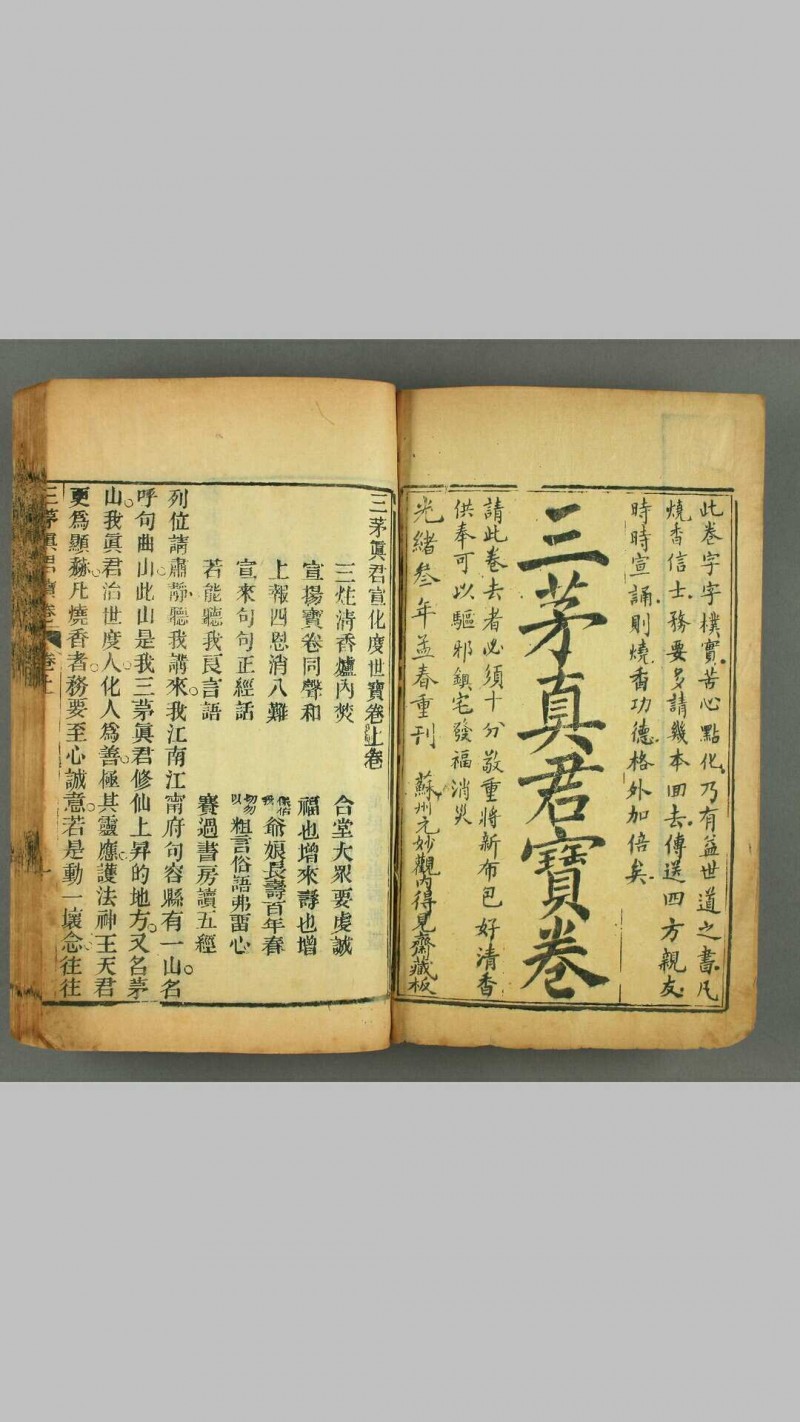 此卷字字樸實苦心點化乃有益世道之書凡
燒香信士務要多請幾本回去傳送四方親友
時時宣誦則燒香功德格外加倍矣
三茅真君寶卷
請此卷去者必須十分敬重將新布包好清香
供奉可以驅邪鎮宅發福消災
光緒叁年孟春重刊 蘇州元妙觀內得見齋藏板
三茅眞君宣化度世寶卷上卷
三炷清香爐內焚 合堂大眾要虔誠
宣揚寶卷同聲和 福也增來壽也增
上報四恩消八難 爺娘長壽百年春
宣來句句正經話 勿以粗言俗語弗留心
若能聽我良言語 賽過書房讀五經
列位請肅靜聽我講來。我江南江甯府句容縣有一山。名
呼句曲山。此山是我三茅眞君修仙上昇的地方。又名茅
山。我眞君治世度人。化人爲善。極其靈應。護法神王天君
更爲顯赫。凡燒香者。務要至心誠意。若是動一壞念。往往
三茅眞君寶卷 卷上